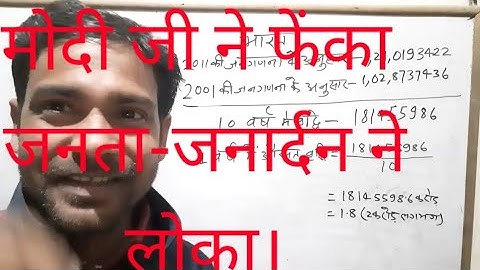 मोदी जी ने फेंका
जनता-जनार्दन ने
लोका।
भारत
2011 की जनगणना के अनुसार- 1,21,0193422
2001 की जनगणना के अनुसार- 1,02,8737436
10 वर्ष में वृद्धि- 181455986
181455986
10
= 18145598.6
= 1.8 (2 करोड़ लगभग)